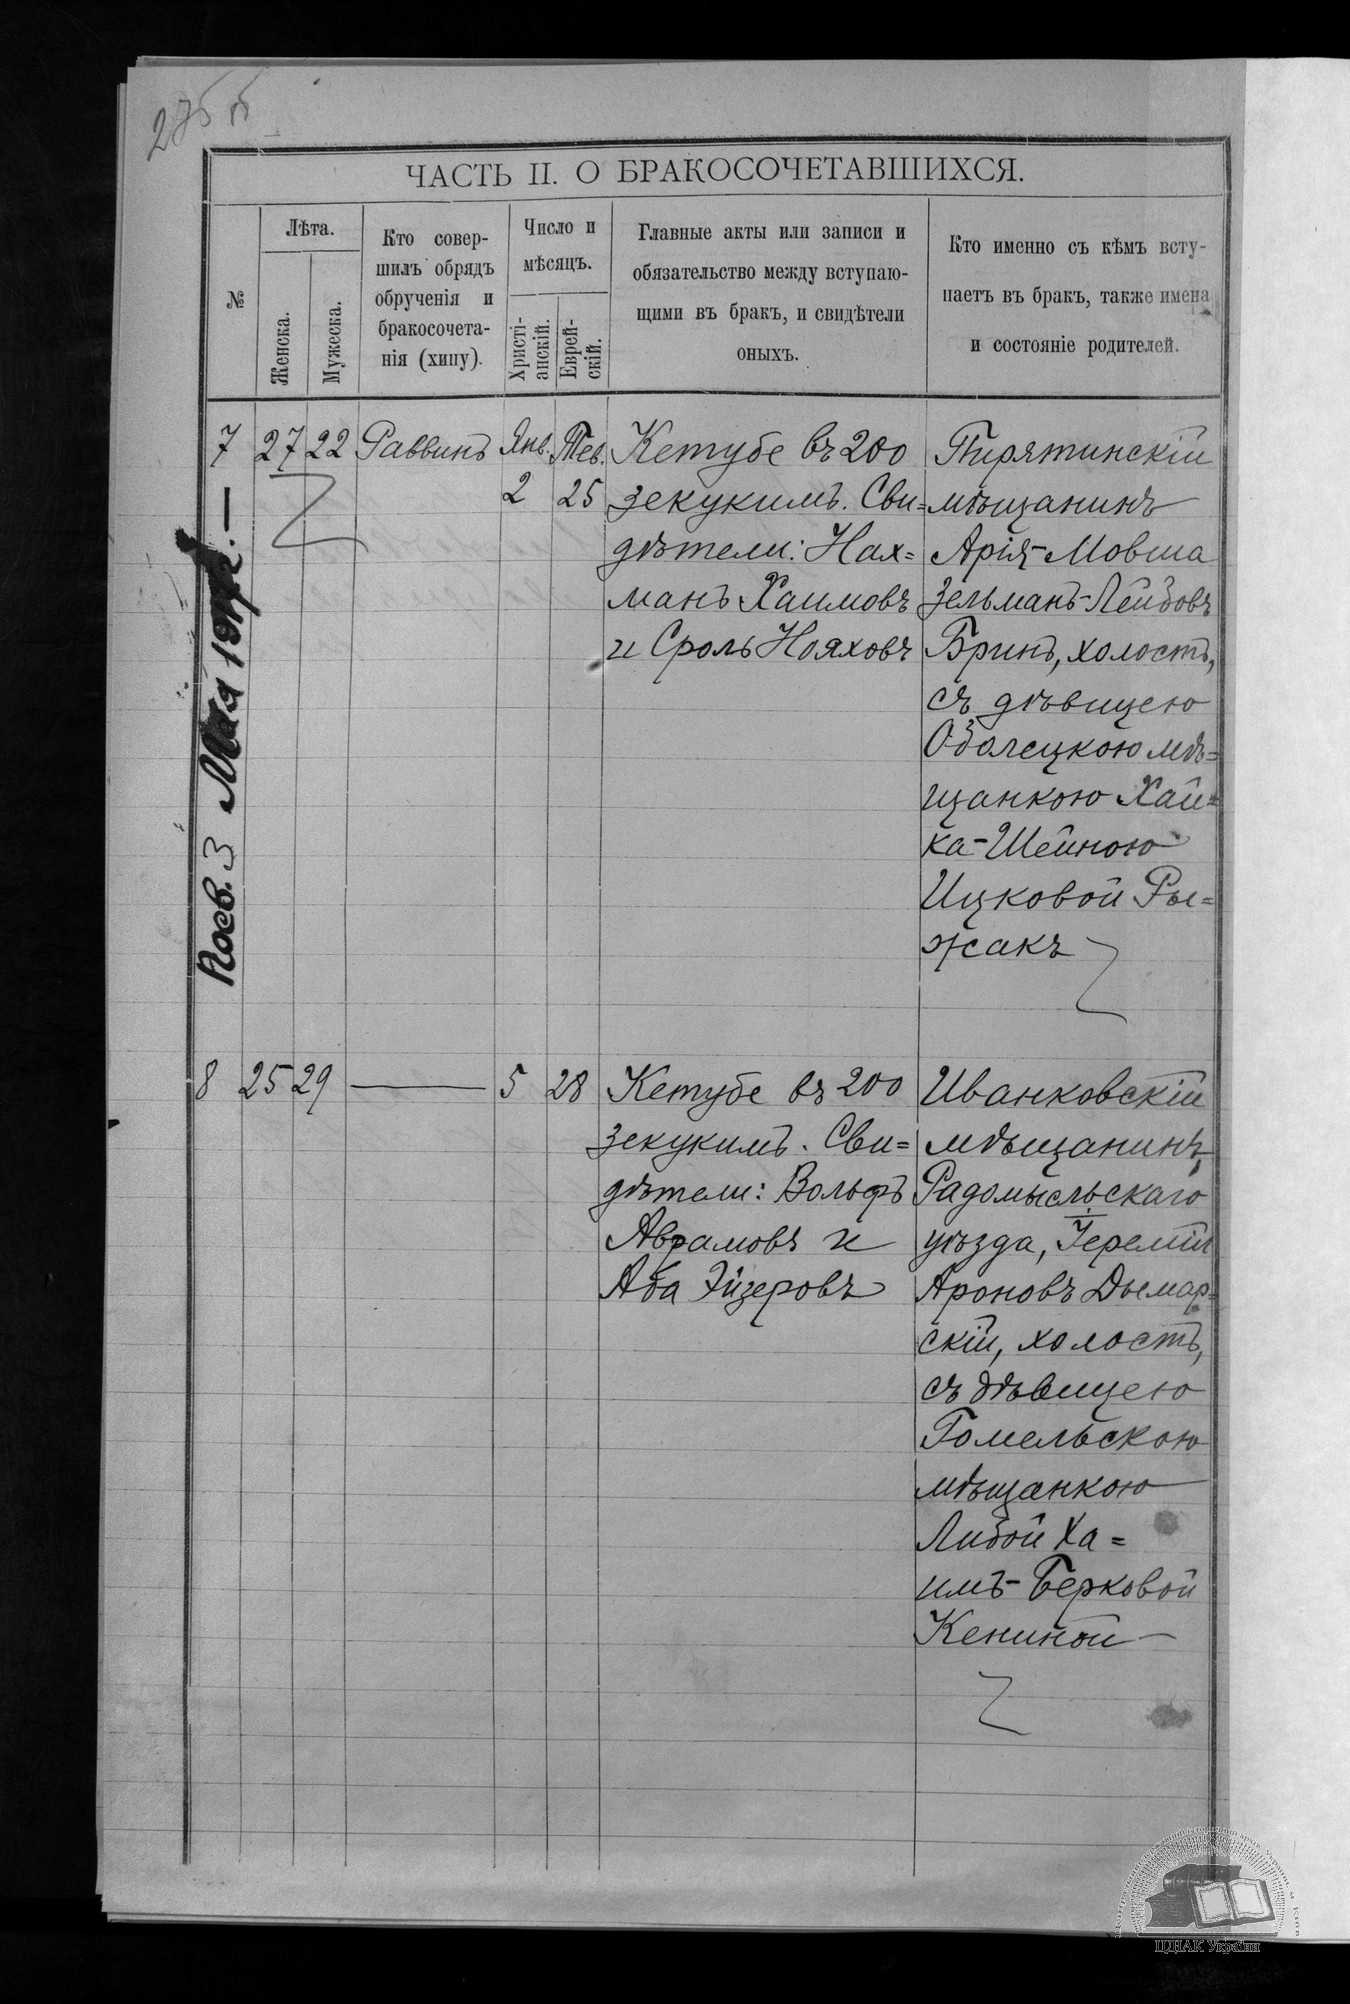 275 б
ЧАСТЬ II. О БРАКОСОЧЕТАВШИХСЯ.
№
Лѣта.
Женска.
Мужеска.
Кто совер-
шилъ обрядъ
обрученія и
бракосочета-
нія (хипу).
Число и
мѣсяцъ.
Христі-
анскій.
Еврей-
скій.
Главные акты или записи и
обязательство между вступаю-
щими въ бракъ, и свидѣтели
оныхъ.
Кто именно съ кѣмъ всту-
паетъ въ бракъ, также имена
и состояніе родителей.
7
27
22
Раввинъ
Янв.
2
Тев.
25
Кетубе въ 200
зекукимъ. Сви=
дѣтели: Нах=
манъ Хаимовъ
и Сроль Нояховъ
Пирятинскій
мѣщанинъ
Арія-Мовша
Зельманъ-Лейбовъ
Бринъ, холостъ,
съ дѣвицею
Оболецкою мѣ=
щанкою Хай=
ка-Шейною
Ицковой Ры=
жакъ
3 Мая
8
25
29
5
28
Кетубе въ 200
зекукимъ. Сви=
дѣтели: Вольфъ
Аврамовъ и
Аба Эйзеровъ
Иванковскій
мѣщанинъ,
Радомысльскаго
уѣзда, Іеремія
Ароновъ Дымар=
скій, холостъ,
съ дѣвицею
Гомельскою
мѣщанкою
Либой Ха=
имъ-Берковой
Кениной
ЦДІАК України